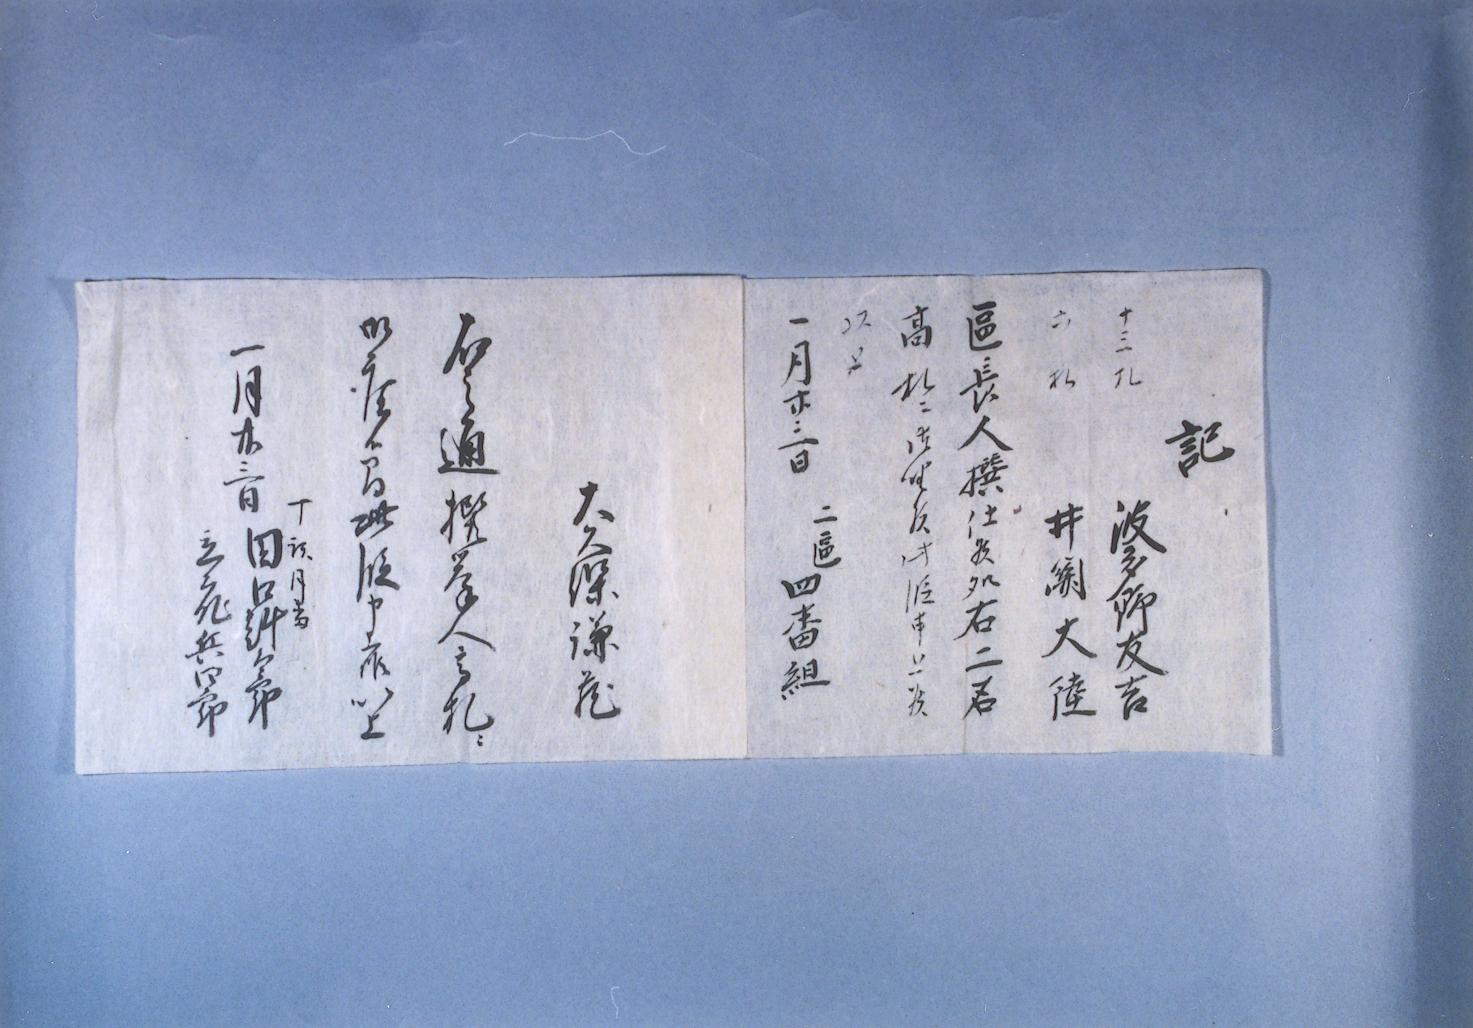 記
十三札 波多野友吉
六札 井関大陸
區長人撰仕候処右二名
高札ニ御座候此段申上候
以上
一月廿三日
二區四番組
大久保謙蔵
右之通撰挙人高札ニ
御座候間此段申上候以上
一月廿三日
丁頭月番
田口
兵四郎